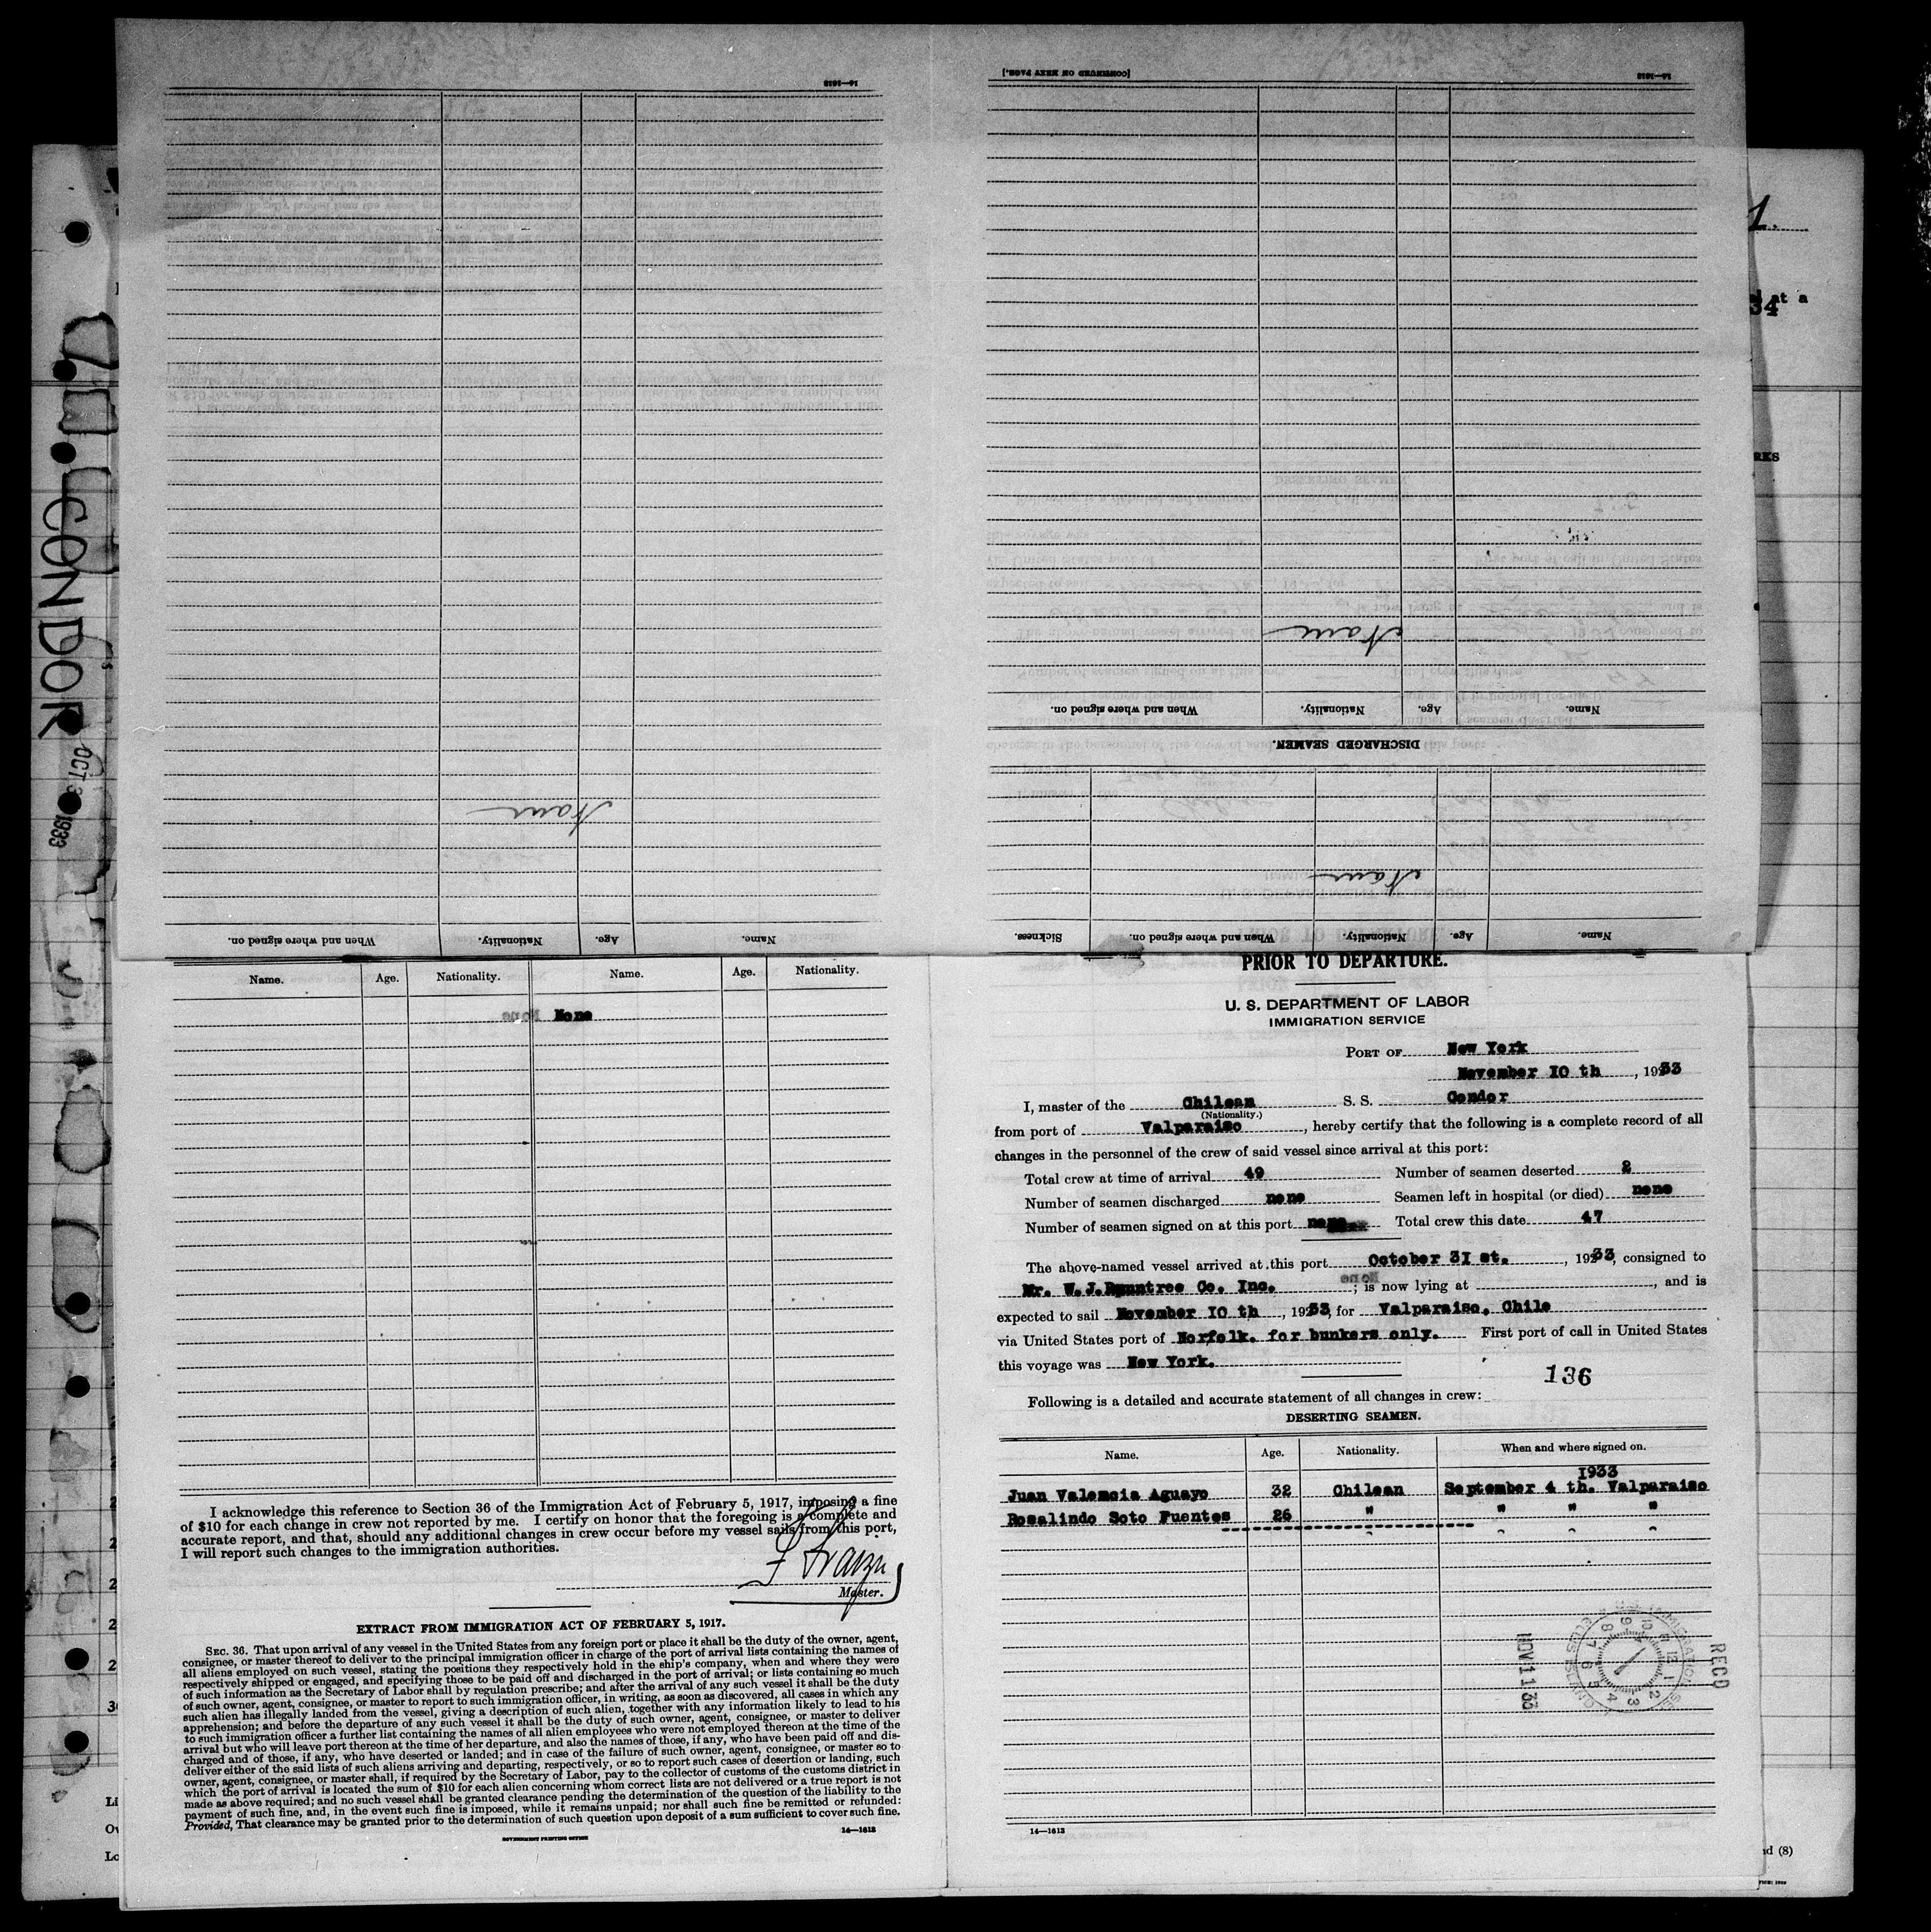 14—1613
[CONTINUED ON NEXT PAGE.]
14—1613
When and where signed on. Nationality. Age. Name.
DISCHARGED SEAMEN.
When and where signed on. Nationality. Age. Name.
Sickness. When and where signed on. Nationality. Age. Name.
CONDOR
1933
1.
at a
34
RKS
Name. Age. Nationality. Name. Age. Nationality.
None
I acknowledge this reference to Section 36 of the Immigration Act of February 5, 1917, imposing a fine
of $10 for each change in crew not reported by me. I certify on honor that the foregoing is a complete and
accurate report, and that, should any additional changes in crew occur before my vessel sails from this port,
I will report such changes to the immigration authorities.
Master.
EXTRACT FROM IMMIGRATION ACT OF FEBRUARY 5, 1917.
SEC. 36. That upon arrival of any vessel in the United States from any foreign port or place it shall be the duty of the owner, agent,
consignee, or master thereof to deliver to the principal immigration officer in charge of the port of arrival lists containing the names of
all aliens employed on such vessel, stating the positions they respectively hold in the ship's company, when and where they were
respectively shipped or engaged, and specifying those to be paid off and discharged in the port of arrival; or lists containing so much
of such information as the Secretary of Labor shall by regulation prescribe; and after the arrival of any such vessel it shall be the duty
of such owner, agent, consignee, or master to report to such immigration officer, in writing, as soon as discovered, all cases in which any
such alien has illegally landed from the vessel, giving a description of such alien, together with any information likely to lead to his
apprehension; and before the departure of any such vessel it shall be the duty of such owner, agent, consignee, or master to deliver
to such immigration officer a further list containing the names of all alien employees who were not employed thereon at the time of the
arrival but who will leave port thereon at the time of her departure, and also the names of those, if any, who have been paid off and dis-
charged and of those, if any, who have deserted or landed; and in case of the failure of such owner, agent, consignee, or master so to
deliver either of the said lists of such aliens arriving and departing, respectively, or so to report such cases of desertion or landing, such
owner, agent, consignee, or master shall, if required by the Secretary of Labor, pay to the collector of customs of the customs district in
which the port of arrival is located the sum of $10 for each alien concerning whom correct lists are not delivered or a true report is not
made as above required; and no such vessel shall be granted clearance pending the determination of the question of the liability to the
payment of such fine, and, in the event such fine is imposed, while it remains unpaid; nor shall such fine be remitted or refunded:
Provided, That clearance may be granted prior to the determination of such question upon deposit of a sum sufficient to cover such fine.
GOVERNMENT PRINTING OFFICE
14—1613
PRIOR TO DEPARTURE.
U. S. DEPARTMENT OF LABOR
IMMIGRATION SERVICE
PORT OF New York
November 10 th, 1933
I, master of the Chilean S. S. Condor
(Nationality.)
from port of Valparaiso, hereby certify that the following is a complete record of all
changes in the personnel of the crew of said vessel since arrival at this port:
Total crew at time of arrival 49 Number of seamen deserted 2
Number of seamen discharged none Seamen left in hospital (or died) none
Number of seamen signed on at this port none Total crew this date 47
The above-named vessel arrived at this port October 31 st., 1933, consigned to
Mr. W.J.Rountree Co. Inc.; is now lying at , and is
expected to sail November 10 th, 1933, for Valparaiso, Chile
via United States port of Norfolk. for bunkers only. First port of call in United States
this voyage was New York.
136
Following is a detailed and accurate statement of all changes in crew:
DESERTING SEAMEN.
Name. Age. Nationality. When and where signed on.
1933
Juan Valencia Aguayo 32 Chilean September 4 th. Valparaiso
Rosalindo Soto Fuentes 26 " " " "
REC'D
NOV 11 33
14—1613
nd (8)